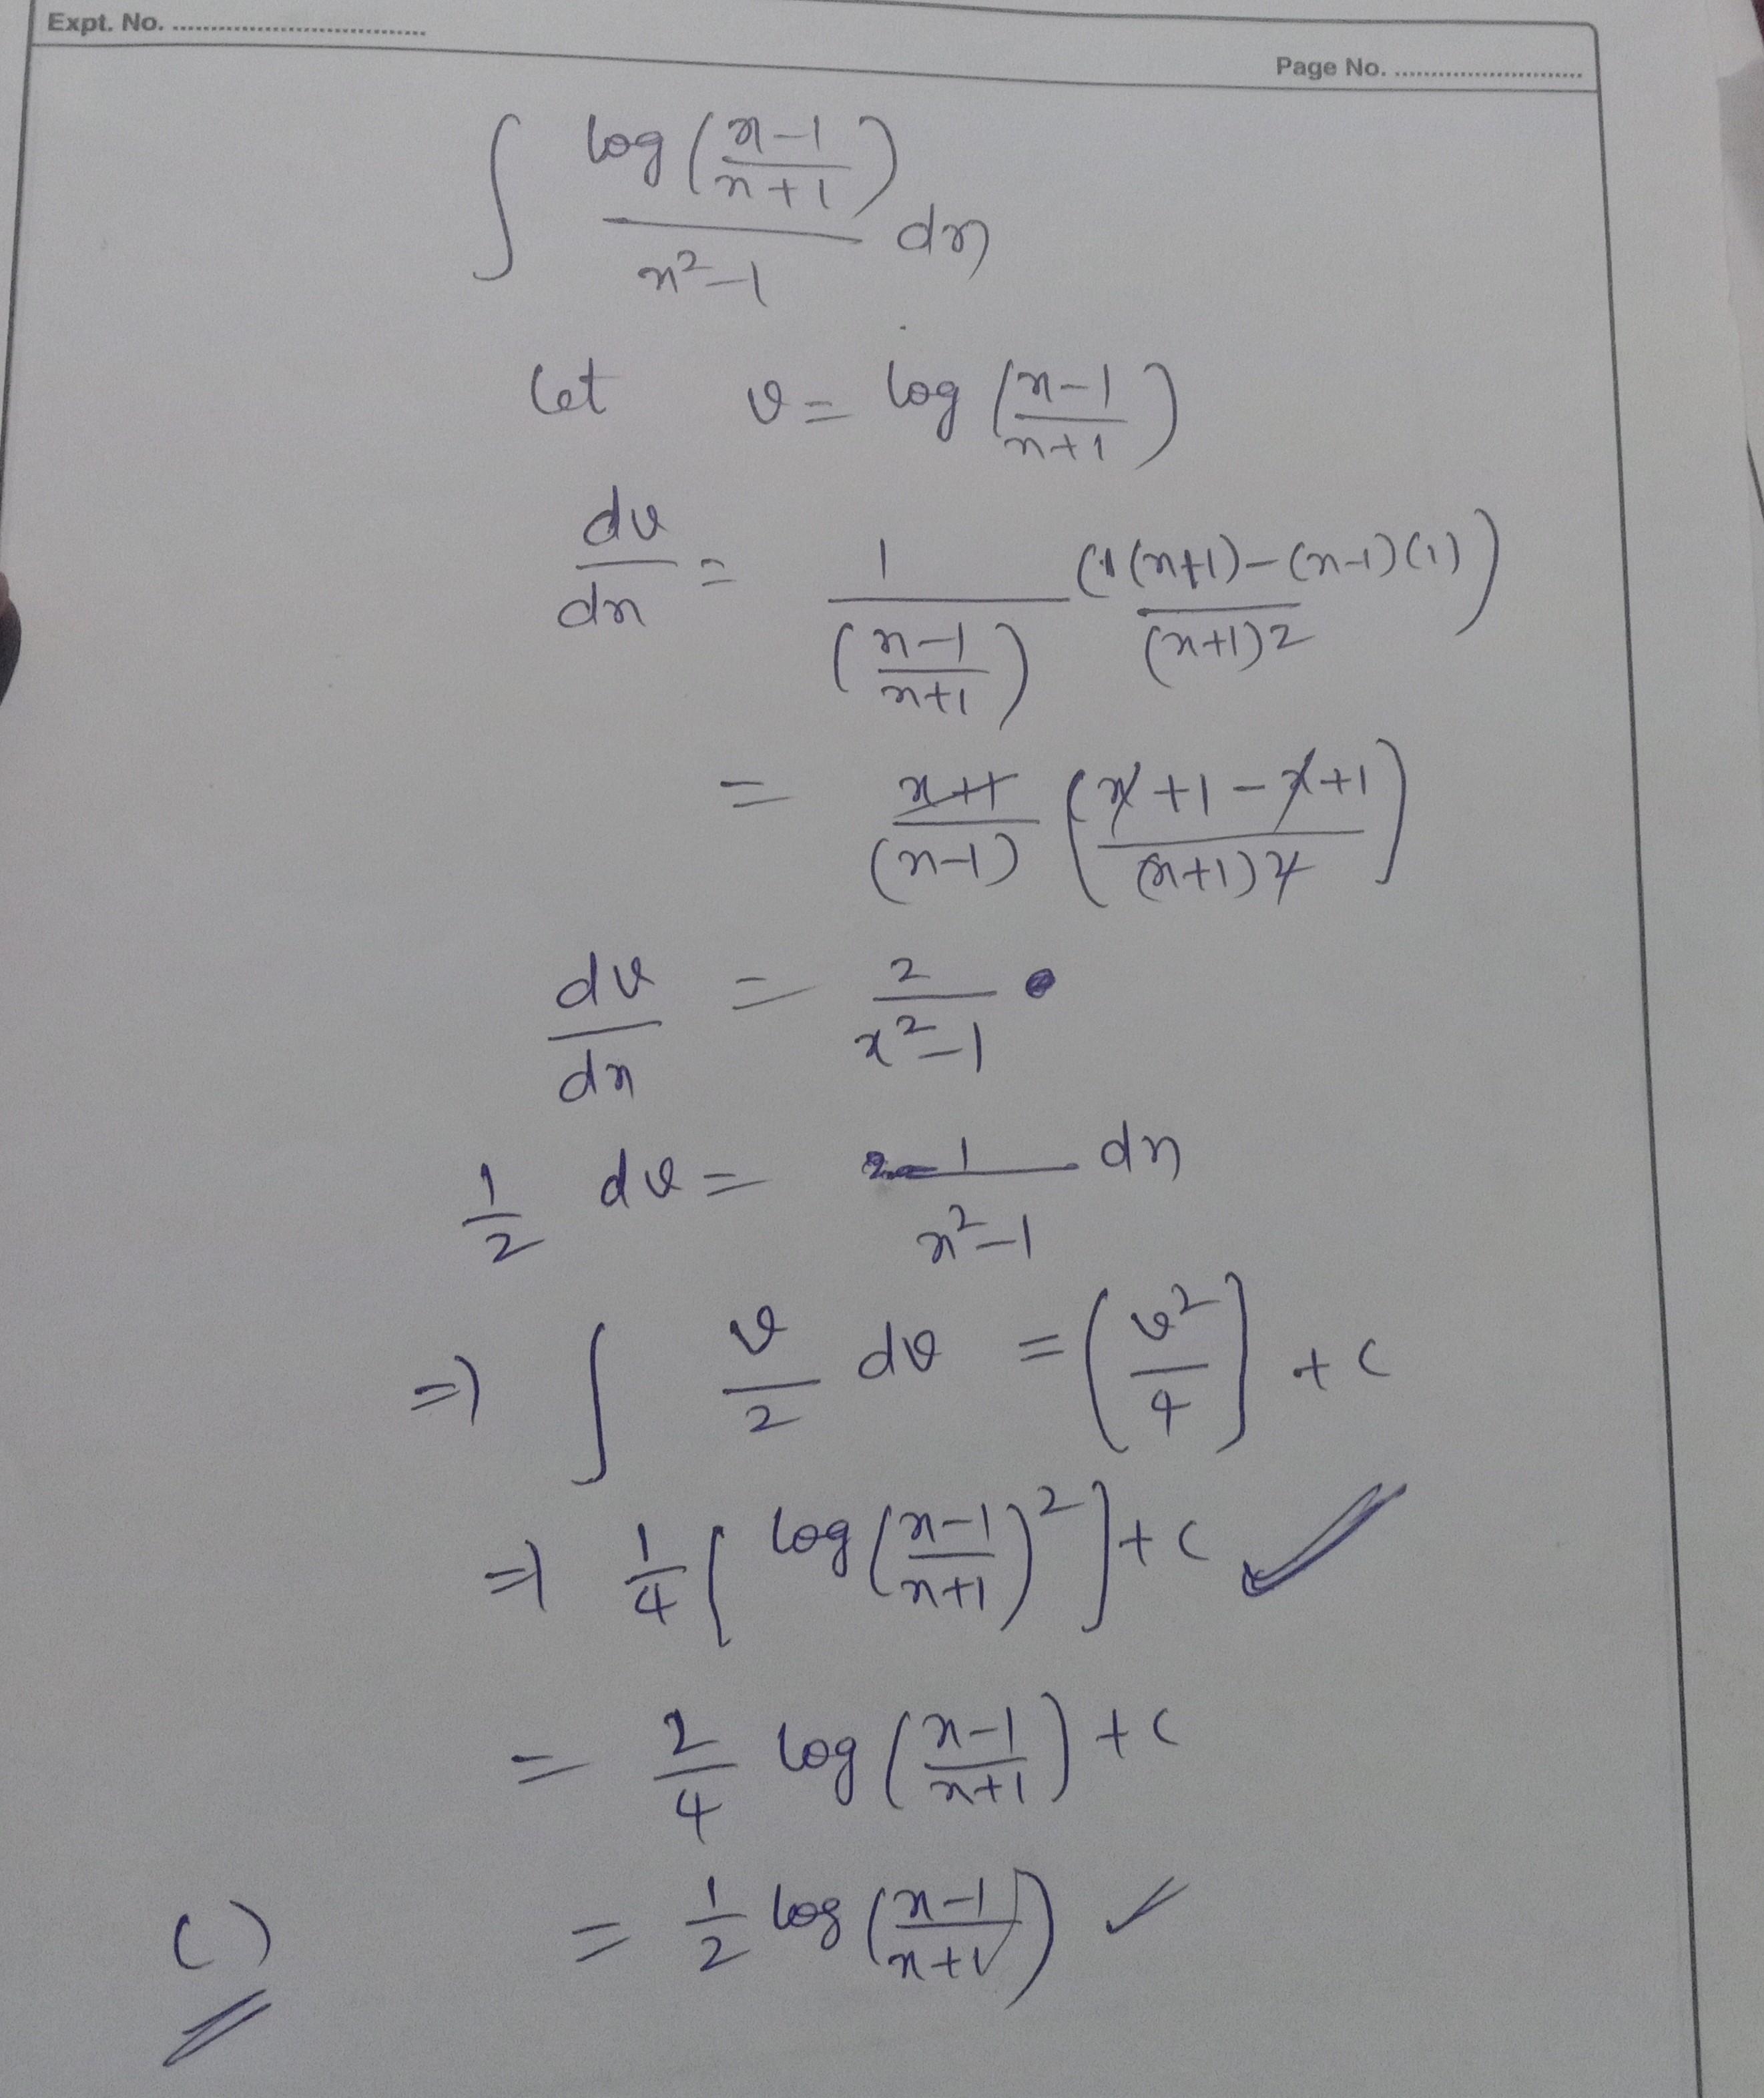 Expt. No. ..............................
Page No. ..........................
∫ log((x-1)/(x+1)) / (x²-1) dx
let v = log((x-1)/(x+1))
dv/dx = 1/((x-1)/(x+1)) (1(x+1)-(x-1)(1))/(x+1)2)
= x+1/(x-1) ((x+1-x+1)/(x+1)2)
dv/dx = 2/(x²-1)
1/2 dv = 1/(x²-1) dx
=> ∫ v/2 dv = (v²/4] + c
=> 1/4 [log((x-1)/(x+1))²] + c ✓
= 2/4 log((x-1)/(x+1)) + c
( ) = 1/2 log((x-1)/(x+1)) ✓